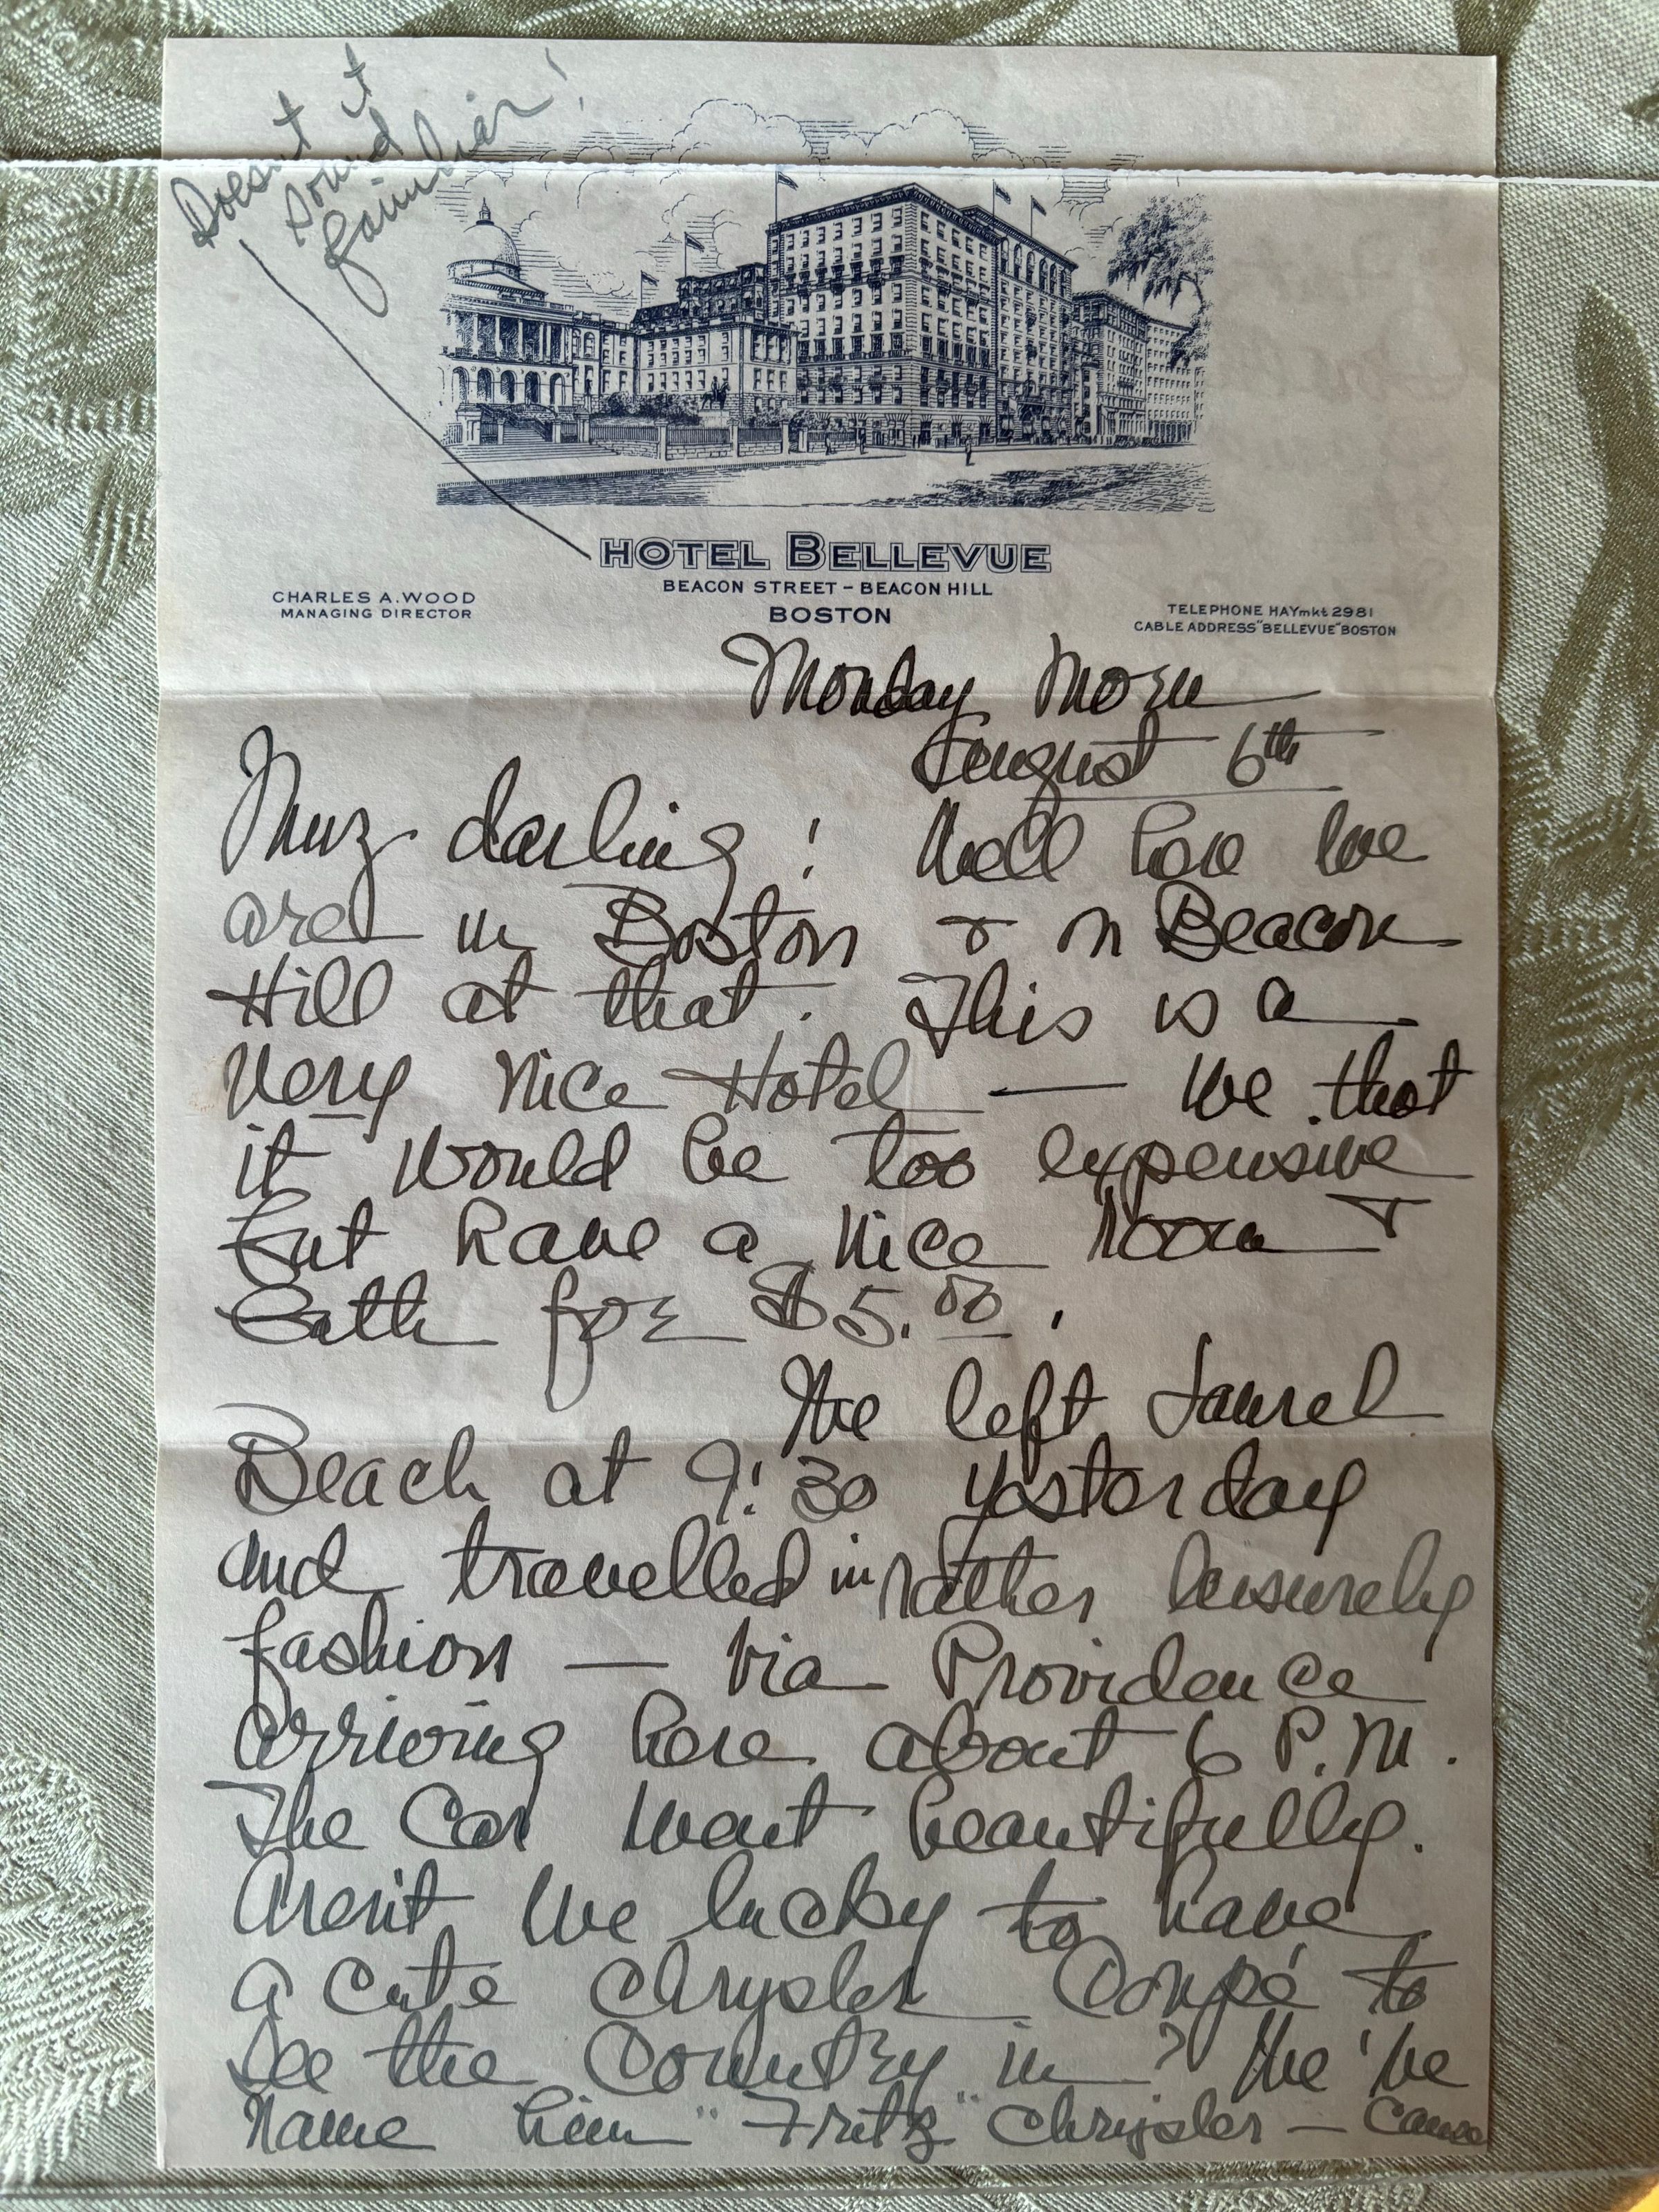 Doesn't
it
sound
familiar!
HOTEL BELLEVUE
BEACON STREET – BEACON HILL
BOSTON
CHARLES A. WOOD
MANAGING DIRECTOR
TELEPHONE HAYmkt 2981
CABLE ADDRESS "BELLEVUE" BOSTON
Monday Morn
August 6th
Muz darling! Well here we
are in Boston & on Beacon
Hill at that. This is a
very nice Hotel — We thot
it would be too expensive
but have a nice room &
bath for $5.00.
We left Laurel
Beach at 9:30 yesterday
and travelled in rather leisurely
fashion — via Providence
arriving here about 6 P.M.
The car went beautifully.
Aren't we lucky to have
a cute Chrysler Coupé to
see the country in? We've
name him "Fritz" Chrysler — cause